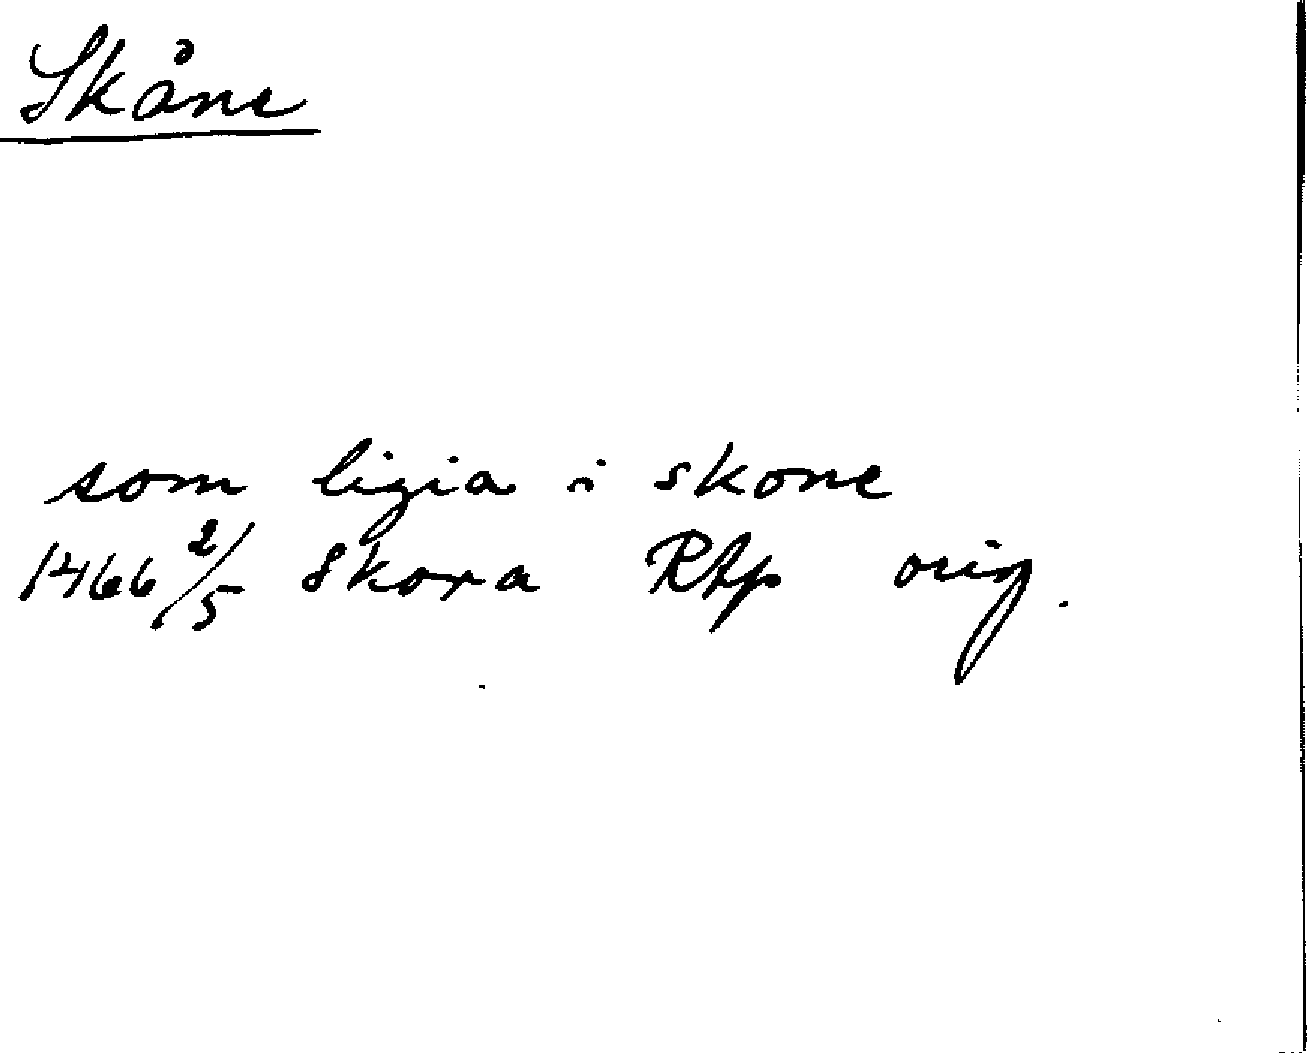 Skåne
som ligia i skone
1466 2/5 Skora RAp orig.